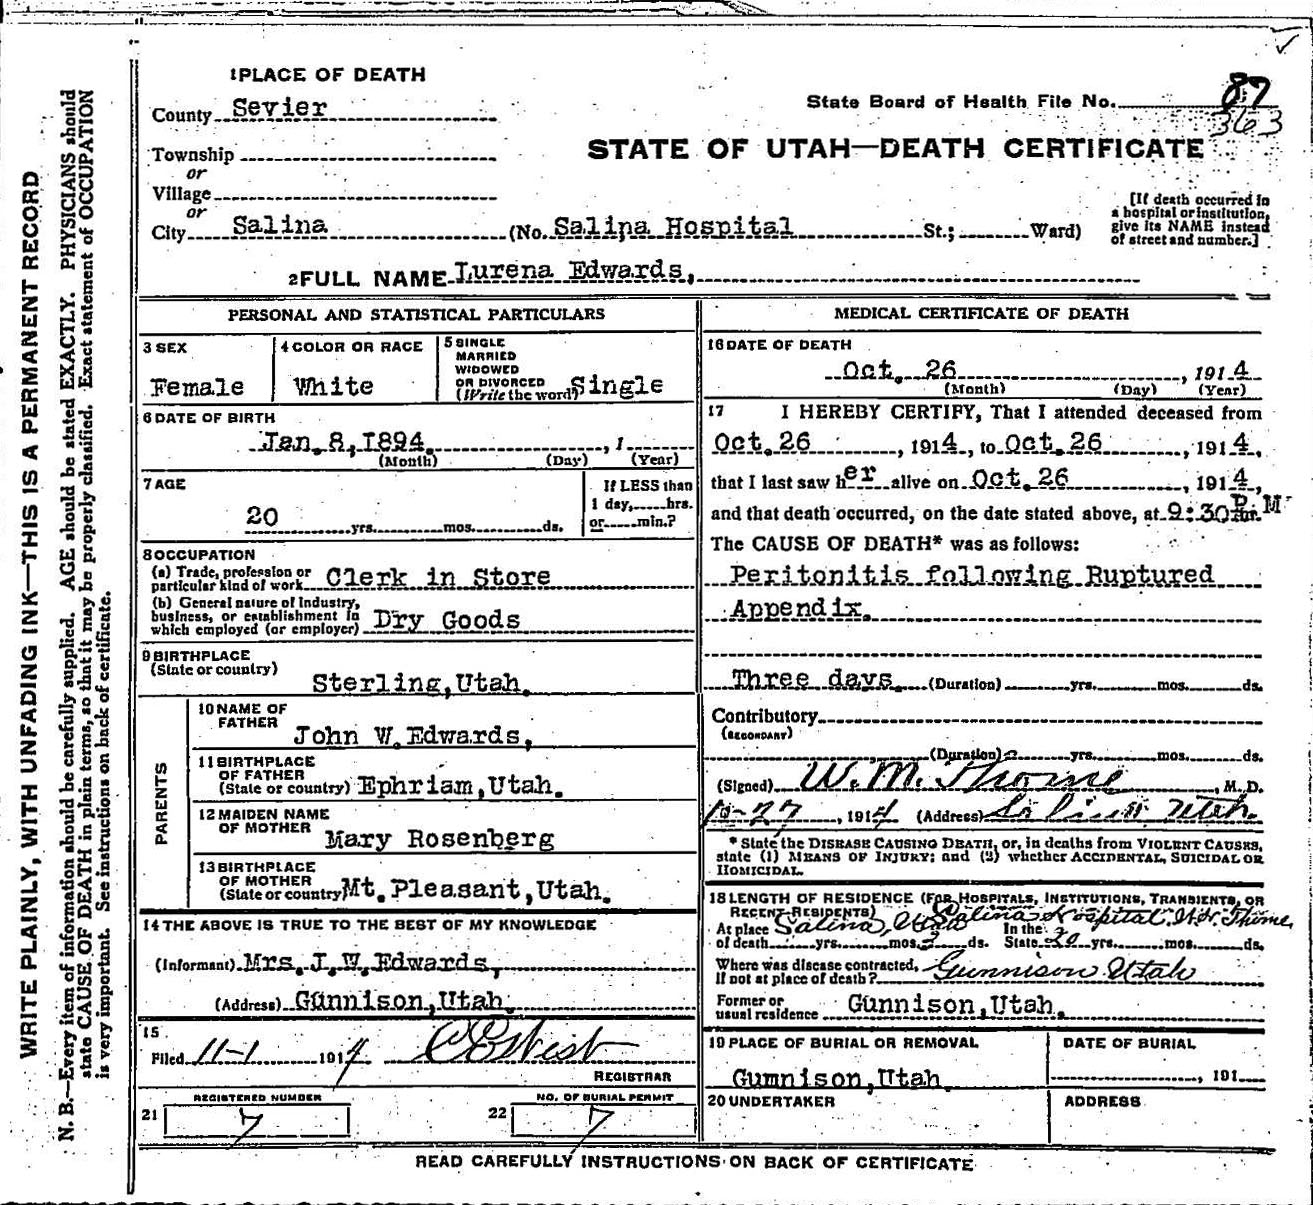 1 PLACE OF DEATH
County Sevier
State Board of Health File No. 87
363
Township
or
Village
or
City Salina (No. Salina Hospital St.; Ward)
STATE OF UTAH—DEATH CERTIFICATE
[If death occurred in
a hospital or institution,
give its NAME instead
of street and number.]
2 FULL NAME Lurena Edwards,
PERSONAL AND STATISTICAL PARTICULARS
3 SEX
Female
4 COLOR OR RACE
White
5 SINGLE
MARRIED
WIDOWED
OR DIVORCED
(Write the word) Single
6 DATE OF BIRTH
Jan. 8, 1894. , 1
(Month) (Day) (Year)
7 AGE
20 yrs. mos. ds.
If LESS than
1 day, hrs.
or min.?
8 OCCUPATION
(a) Trade, profession or
particular kind of work Clerk in Store
(b) General nature of Industry,
business, or establishment in
which employed (or employer) Dry Goods
9 BIRTHPLACE
(State or country)
Sterling, Utah.
PARENTS
10 NAME OF
FATHER
John W. Edwards,
11 BIRTHPLACE
OF FATHER
(State or country) Ephriam, Utah.
12 MAIDEN NAME
OF MOTHER
Mary Rosenberg
13 BIRTHPLACE
OF MOTHER
(State or country) Mt. Pleasant, Utah.
14 THE ABOVE IS TRUE TO THE BEST OF MY KNOWLEDGE
(Informant) Mrs. J. W. Edwards,
(Address) Gunnison, Utah.
15
Filed 11-1 1914
REGISTRAR
REGISTERED NUMBER
21 7
NO. OF BURIAL PERMIT
22 7
MEDICAL CERTIFICATE OF DEATH
16 DATE OF DEATH
Oct. 26 , 1914
(Month) (Day) (Year)
17 I HEREBY CERTIFY, That I attended deceased from
Oct. 26 , 1914, to Oct. 26 , 1914,
that I last saw her alive on Oct. 26 , 1914,
and that death occurred, on the date stated above, at 9:30 P. M
The CAUSE OF DEATH* was as follows:
Peritonitis following Ruptured
Appendix.
Three days. (Duration) yrs. mos. ds.
Contributory
(SECONDARY)
(Duration) yrs. mos. ds.
(Signed) W. M. Thome, M. D.
10-27, 1914 (Address) Salina Utah.
* State the DISEASE CAUSING DEATH, or, in deaths from VIOLENT CAUSES,
state (1) MEANS OF INJURY; and (2) whether ACCIDENTAL, SUICIDAL OR
HOMICIDAL.
18 LENGTH OF RESIDENCE (FOR HOSPITALS, INSTITUTIONS, TRANSIENTS, OR
RECENT RESIDENTS) Salina Hospital
At place Salina, Utah In the
of death yrs. mos. ds. State 20 yrs. mos. ds.
Where was disease contracted,
If not at place of death? Gunnison Utah
Former or
usual residence Gunnison, Utah.
19 PLACE OF BURIAL OR REMOVAL
Gumnison, Utah
DATE OF BURIAL
, 191
20 UNDERTAKER
ADDRESS
READ CAREFULLY INSTRUCTIONS ON BACK OF CERTIFICATE
WRITE PLAINLY, WITH UNFADING INK—THIS IS A PERMANENT RECORD
N. B.—Every item of information should be carefully supplied. AGE should be stated EXACTLY. PHYSICIANS should
state CAUSE OF DEATH in plain terms, so that it may be properly classified. Exact statement of OCCUPATION
is very important. See instructions on back of certificate.